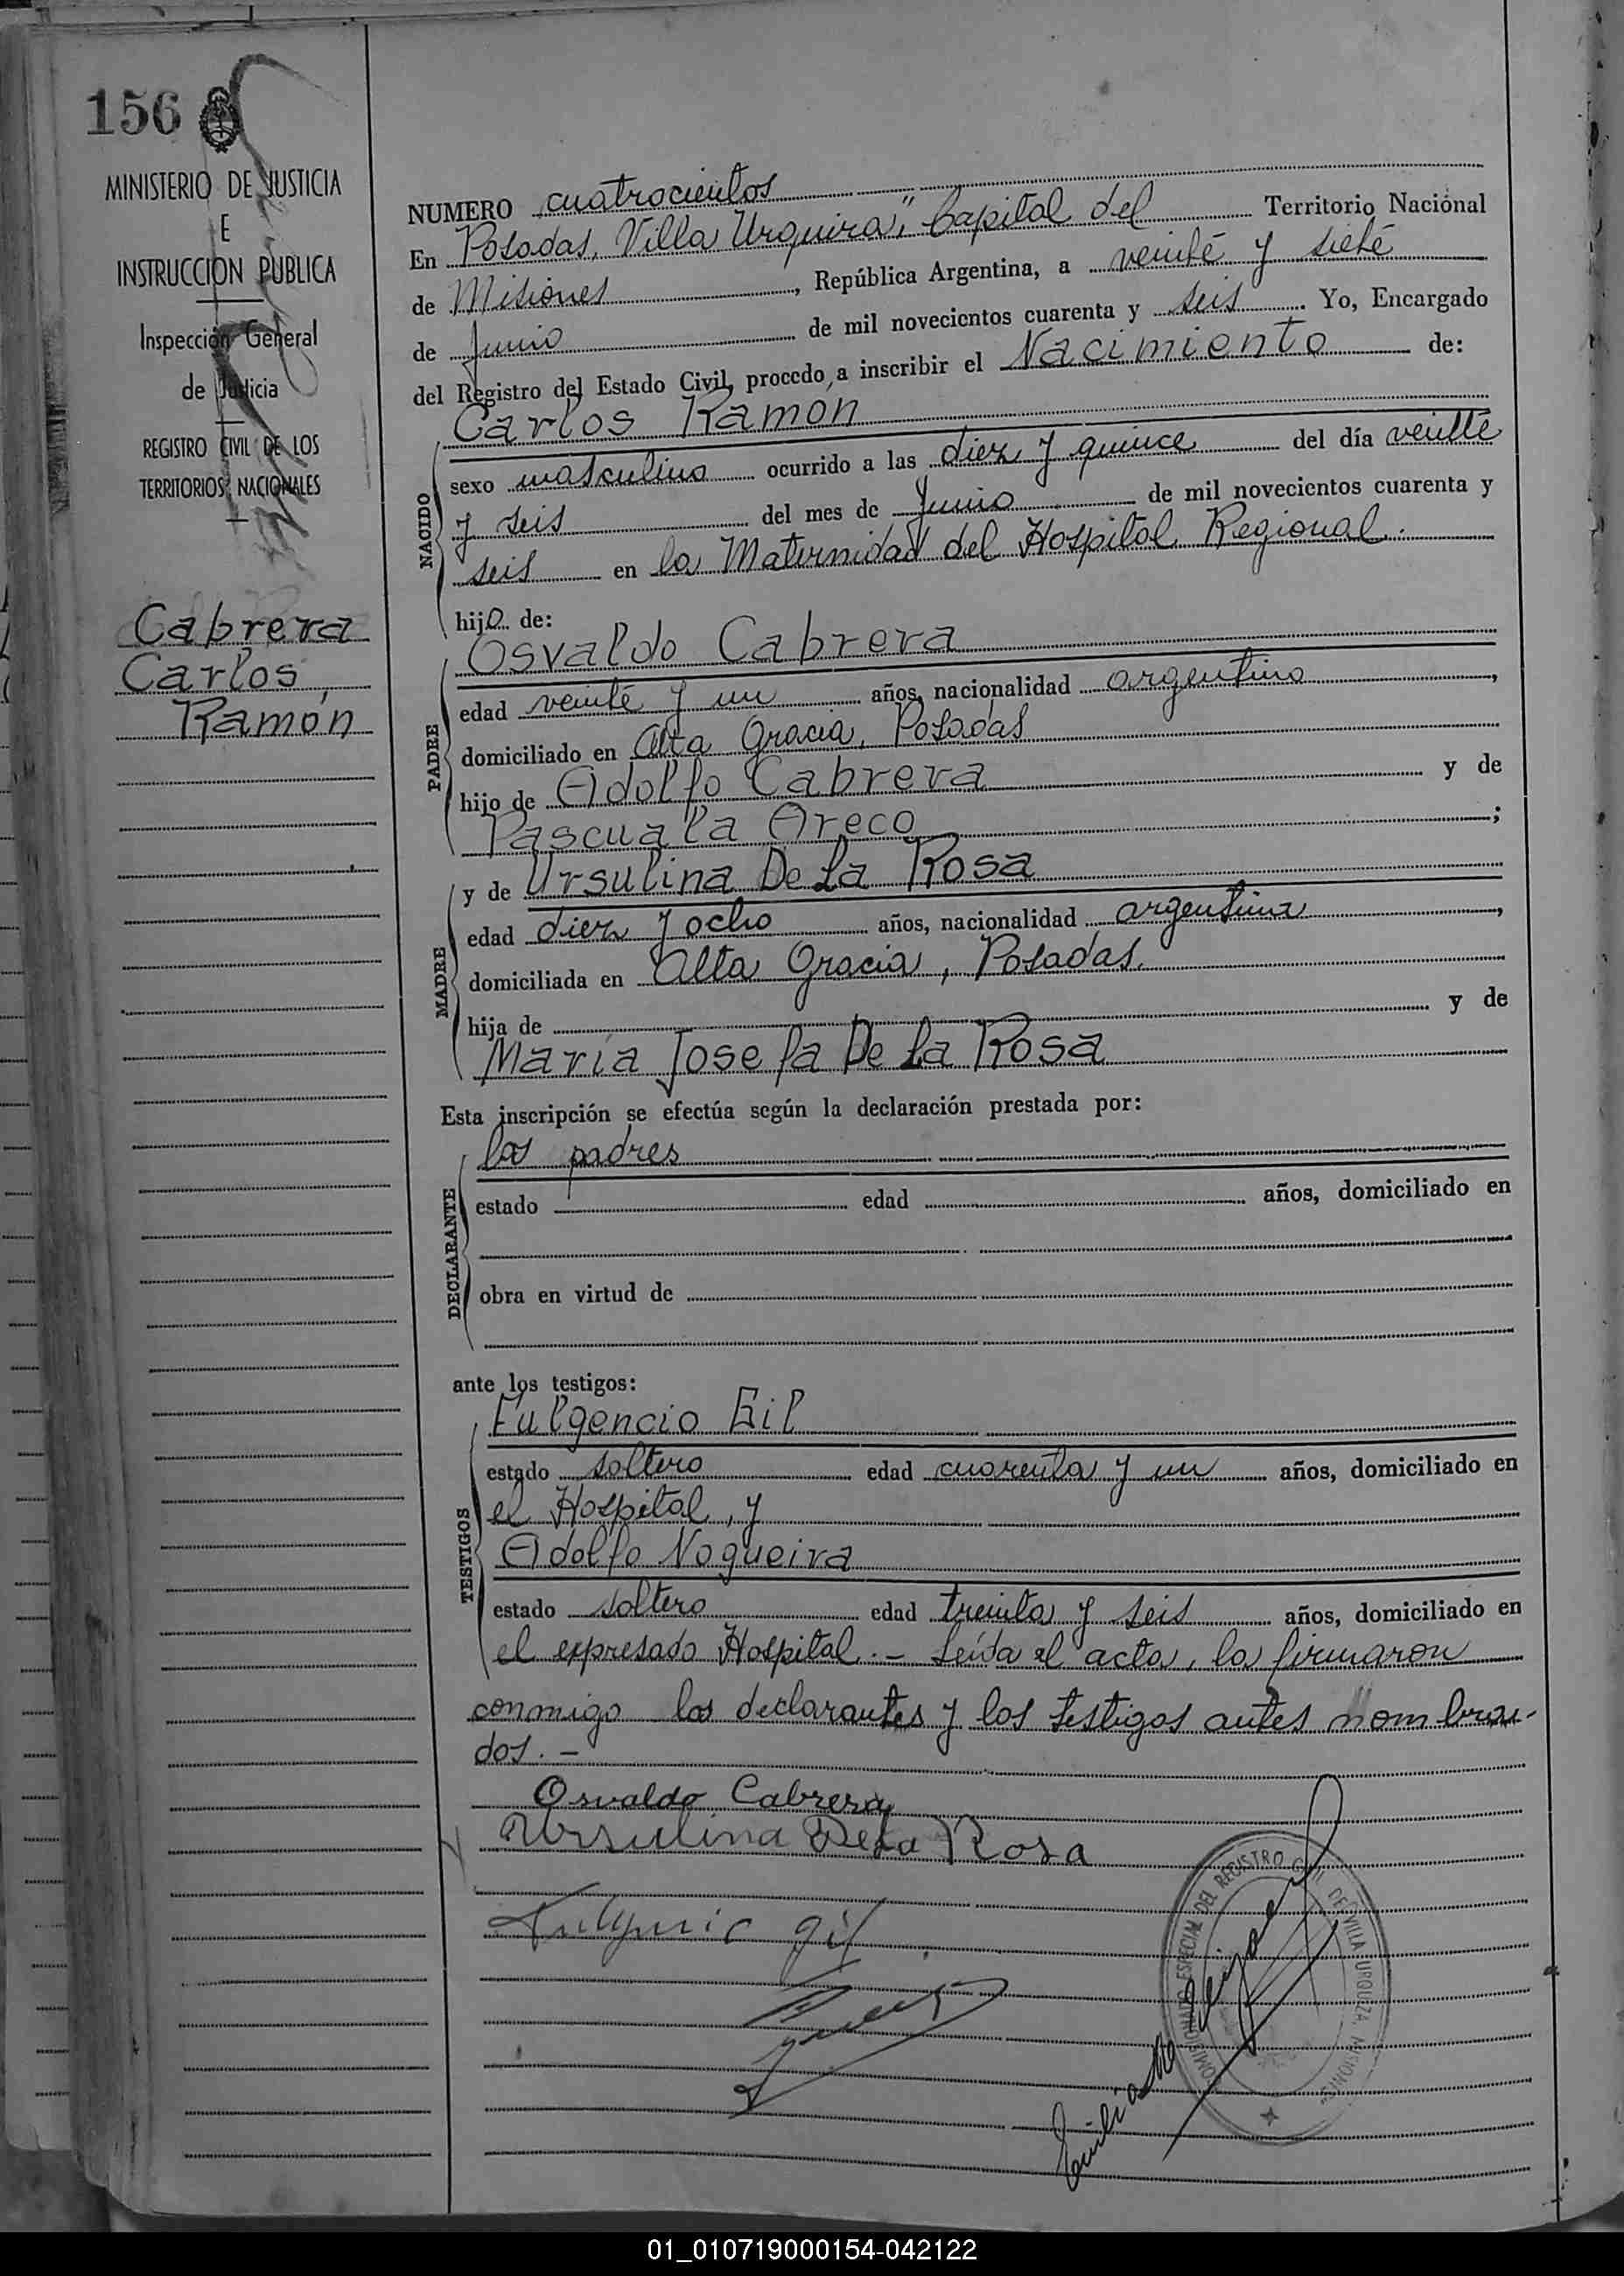 156
MINISTERIO DE JUSTICIA
E
INSTRUCCION PUBLICA
Inspección General
de Justicia
REGISTRO CIVIL DE LOS
TERRITORIOS NACIONALES
Cabrera
Carlos
Ramón
NUMERO cuatrocientos
En Posadas, Villa Urquiza", Capital del Territorio Nacional
de Misiones, República Argentina, a veinte y siete
de junio de mil novecientos cuarenta y seis. Yo, Encargado
del Registro del Estado Civil, procedo a inscribir el Nacimiento de:
Carlos Ramon
NACIDO
sexo masculino ocurrido a las diez y quince del día veinte
y seis del mes de junio de mil novecientos cuarenta y
seis en la Maternidad del Hospital Regional.
hijo de:
Osvaldo Cabrera
PADRE
edad veinte y un años, nacionalidad argentino,
domiciliado en Alta Gracia, Posadas
hijo de Adolfo Cabrera y de
Pascuala Areco;
y de Ursulina De La Rosa
MADRE
edad diez y ocho años, nacionalidad argentina,
domiciliada en Alta Gracia, Posadas.
hija de y de
María Josefa De La Rosa
Esta inscripción se efectúa según la declaración prestada por:
los padres
DECLARANTE
estado edad años, domiciliado en
obra en virtud de
ante los testigos:
Fulgencio Gil
TESTIGOS
estado soltero edad cuarenta y un años, domiciliado en
el Hospital, y
Adolfo Nogueira
estado soltero edad treinta y seis años, domiciliado en
el expresado Hospital.- Leída el acta, la firmaron
conmigo los declarantes y los testigos antes nombra-
dos.-
Osvaldo Cabrera
Ursulina De La Rosa
Fulgencio Gil
ESPECIAL DEL REGISTRO CIVIL DE VILLA URQUIZA, MISIONES
01_010719000154-042122